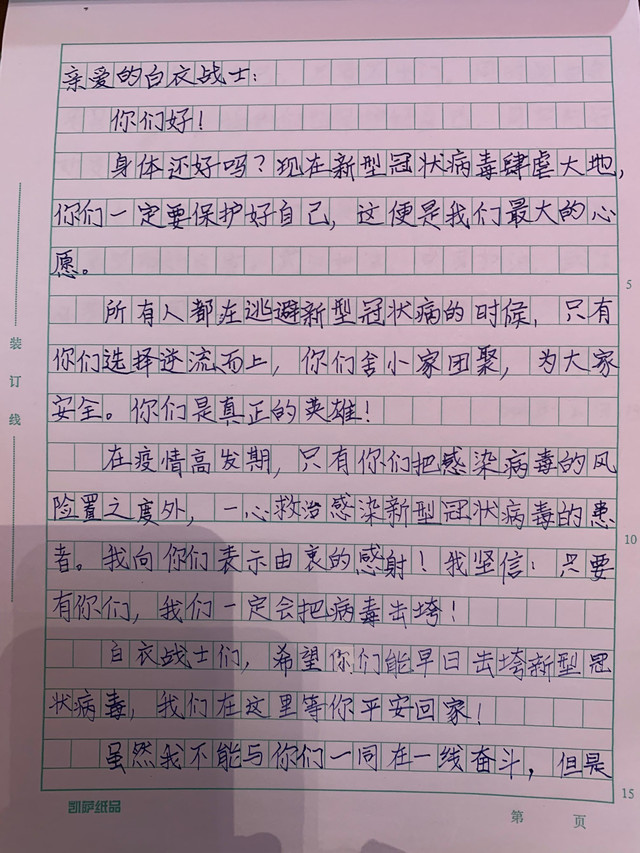 亲爱的白衣战士：
你们好！
身体还好吗？现在新型冠状病毒肆虐大地，
你们一定要保护好自己，这便是我们最大的心
愿。
所有人都在逃避新型冠状病的时候，只有
你们选择逆流而上，你们舍小家团聚，为大家
安全。你们是真正的英雄！
在疫情高发期，只有你们把感染病毒的风
险置之度外，一心救治感染新型冠状病毒的患
者。我向你们表示由衷的感射！我坚信：只要
有你们，我们一定会把病毒击垮！
白衣战士们，希望你们能早日击垮新型冠
状病毒，我们在这里等你平安回家！
虽然我不能与你们一同在一线奋斗，但是
装订线
5
10
15
凯萨纸品
第 页